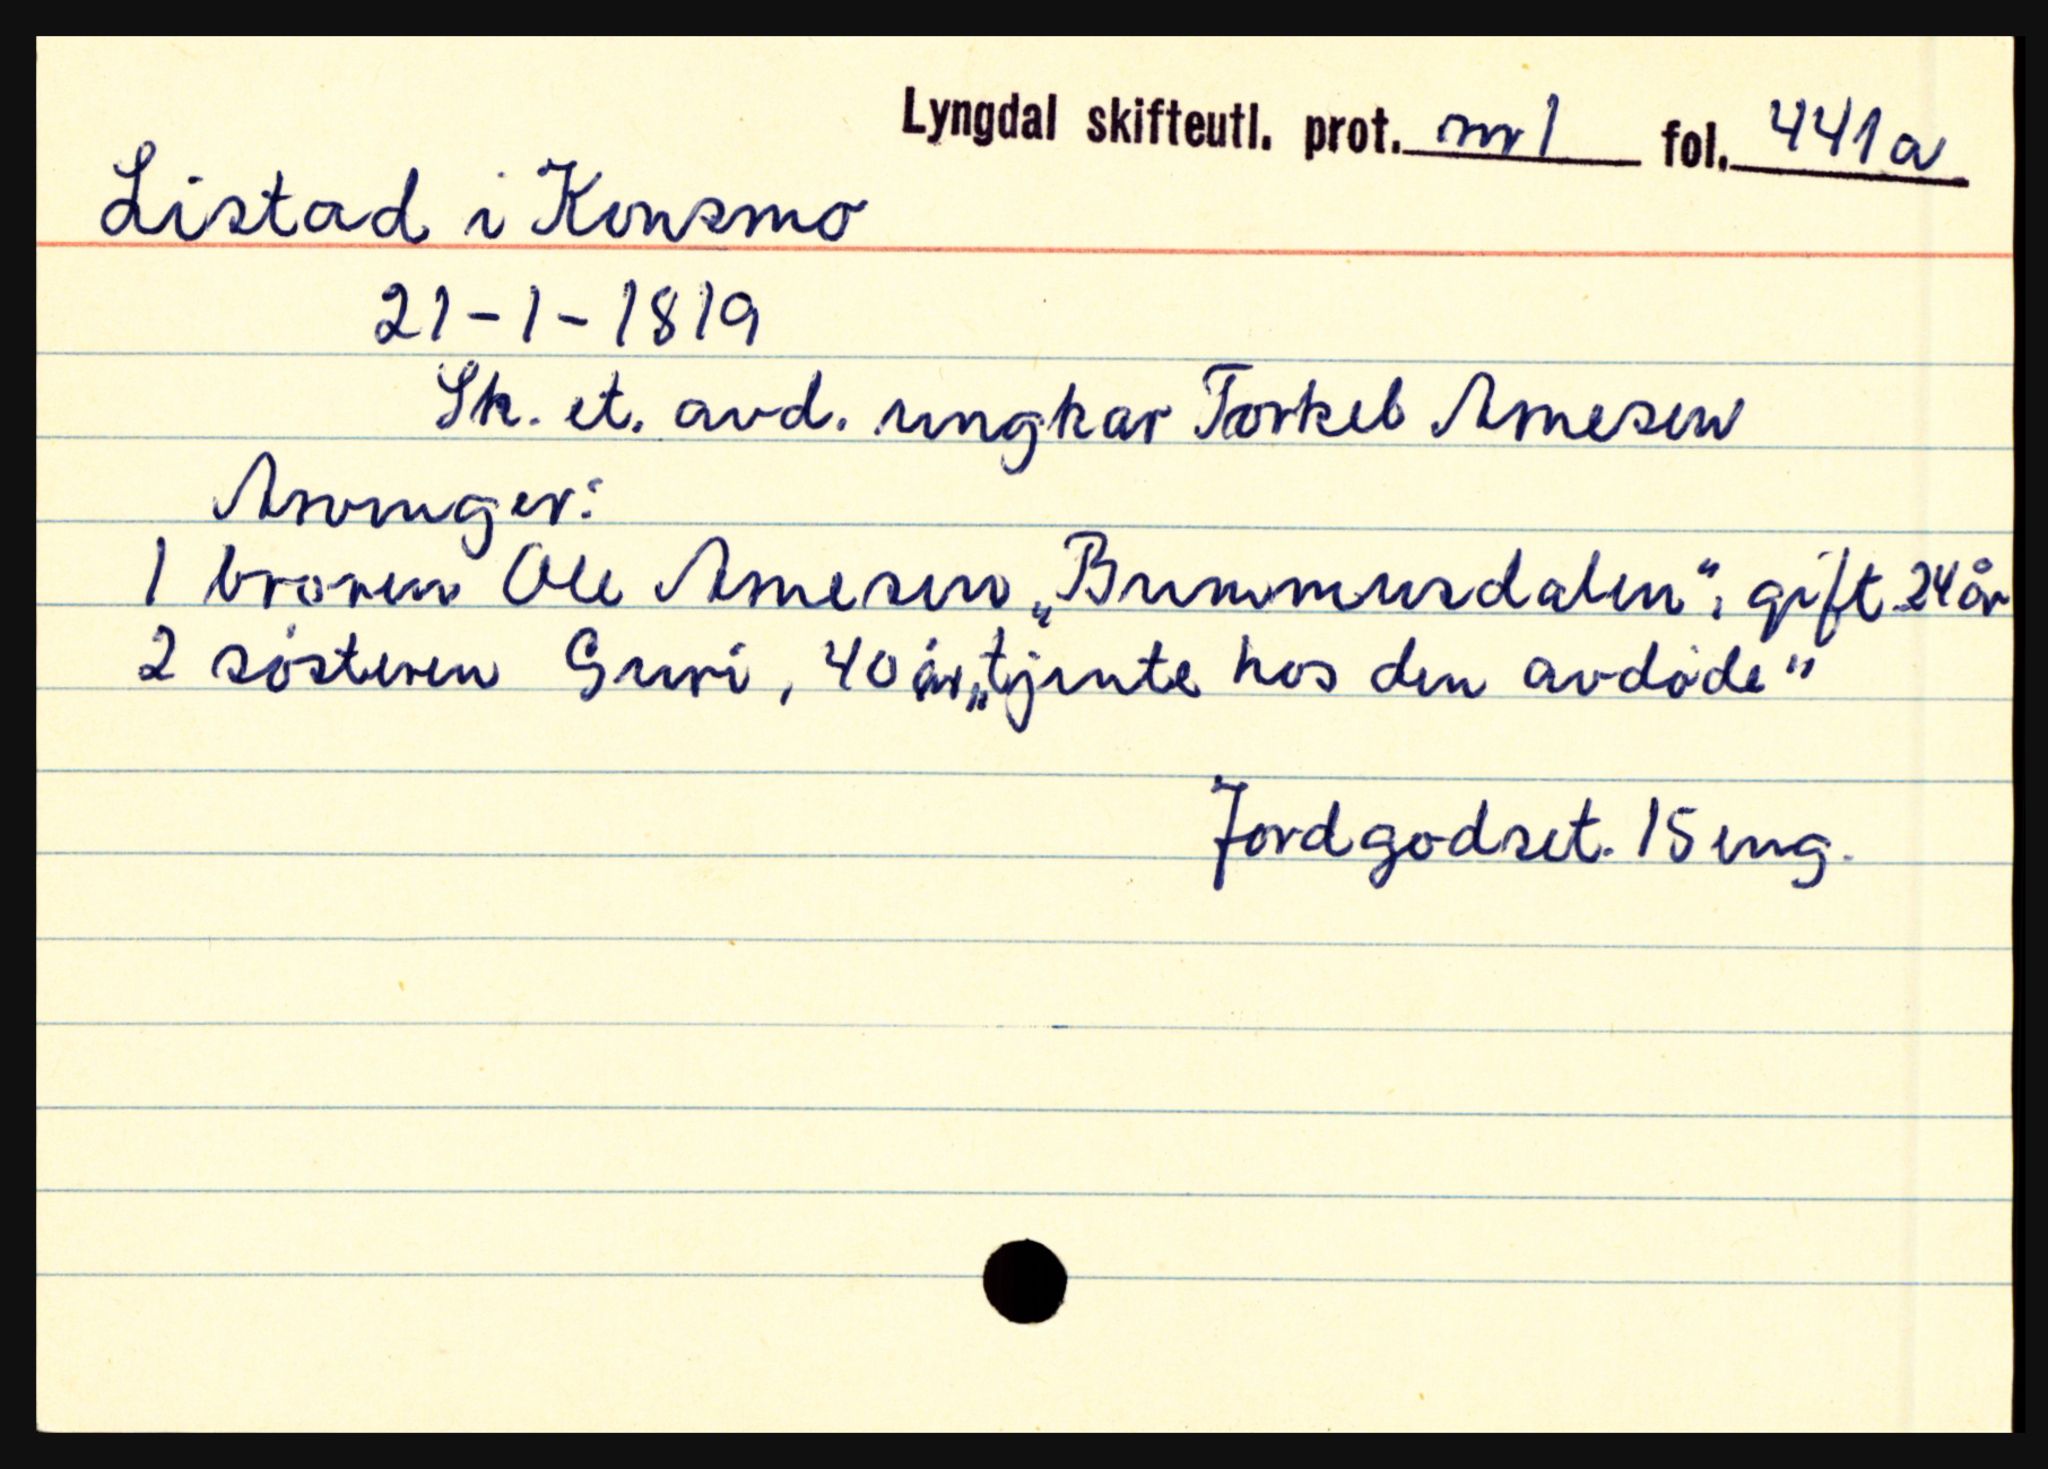 Lyngdal skifteutl. prot. nr 1 fol. 441a
Listad i Konsmo
21-1-1819
Sk. et. avd. ungkar Torkel Arnesen
Arvinger:
1 broren Ole Arnesen „Brummusdalen“, gift 24 år
2 søsteren Guri, 40 år, „tjente hos den avdøde”
Jordgodset. 15 eng.